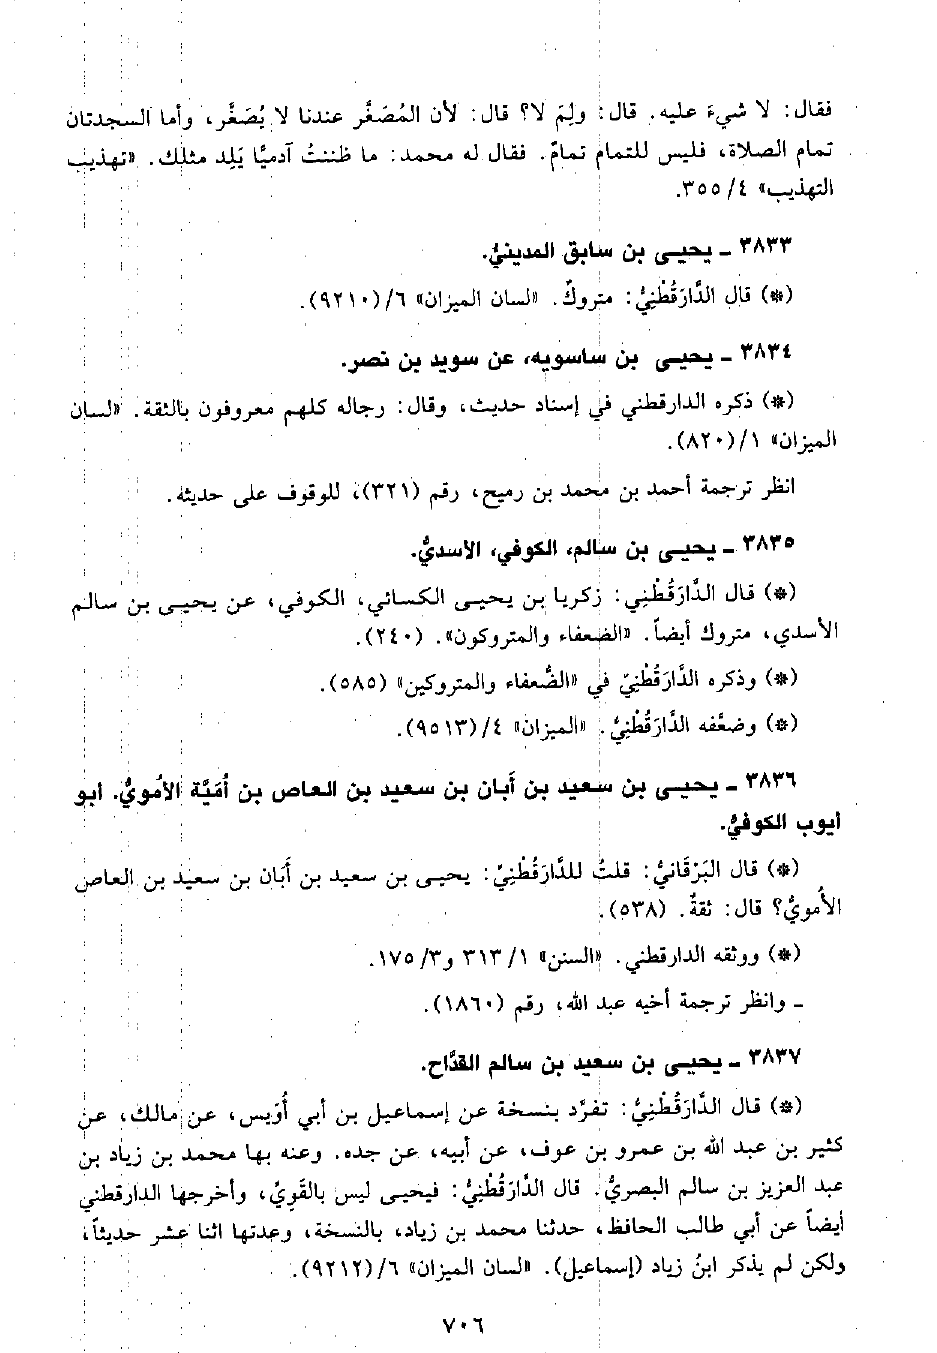 فقال: لا شيءَ عليه. قال: ولِمَ لا؟ قال: لأن المُصَغَّر عندنا لا يُصَغَّر، وأما السجدتان
تمام الصلاة، فليس للتمام تمامٌ. فقال له محمد: ما ظننتُ آدميًّا يَلِد مثلك. «تهذيب
التهذيب» ٤/ ٣٥٥.
٣٨٣٣ ـ يحيى بن سابق المدينيُّ.
(*) قال الدَّارَقُطْنِيُّ: متروكٌ. «لسان الميزان» ٦/(٩٢١٠).
٣٨٣٤ ـ يحيى بن ساسويه، عن سويد بن نصر.
(*) ذكره الدارقطني في إسناد حديث، وقال: رجاله كلهم معروفون بالثقة. «لسان
الميزان» ١/(٨٢٠).
انظر ترجمة أحمد بن محمد بن رميح، رقم (٣٢١)، للوقوف على حديثه.
٣٨٣٥ ـ يحيى بن سالم، الكوفي، الأسديُّ.
(*) قال الدَّارَقُطْنِي: زكريا بن يحيى الكسائي، الكوفي، عن يحيى بن سالم
الأسدي، متروك أيضاً. «الضعفاء والمتروكون». (٢٤٠).
(*) وذكره الدَّارَقُطْنِيّ في «الضُّعفاء والمتروكين» (٥٨٥).
(*) وضعَّفه الدَّارَقُطْنِيُّ. «الميزان» ٤/(٩٥١٣).
٣٨٣٦ ـ يحيى بن سعيد بن أَبان بن سعيد بن العاص بن أُمَيَّة الأمويُّ. أبو
أيوب الكوفيُّ.
(*) قال البَرْقَانيُّ: قلتُ للدَّارَقُطْنِيِّ: يحيى بن سعيد بن أَبَان بن سعيد بن العاص
الأُمويُّ؟ قال: ثقةٌ. (٥٣٨).
(*) ووثقه الدارقطني. «السنن» ١/ ٣١٣ و٣/ ١٧٥.
ـ وانظر ترجمة أخيه عبد الله، رقم (١٨٦٠).
٣٨٣٧ ـ يحيى بن سعيد بن سالم القدَّاح.
(*) قال الدَّارَقُطْنِيُّ: تفرَّد بنسخة عن إسماعيل بن أبي أُوَيس، عن مالك، عن
كثير بن عبد الله بن عمرو بن عوف، عن أبيه، عن جده. وعنه بها محمد بن زياد بن
عبد العزيز بن سالم البصريُّ. قال الدَّارَقُطْنِيُّ: فيحيى ليس بالقَوِيِّ، وأخرجها الدارقطني
أيضاً عن أبي طالب الحافظ، حدثنا محمد بن زياد، بالنسخة، وعدتها اثنا عشر حديثاً،
ولكن لم يذكر ابنُ زياد (إسماعيل). «لسان الميزان» ٦/(٩٢١٢).
٧٠٦